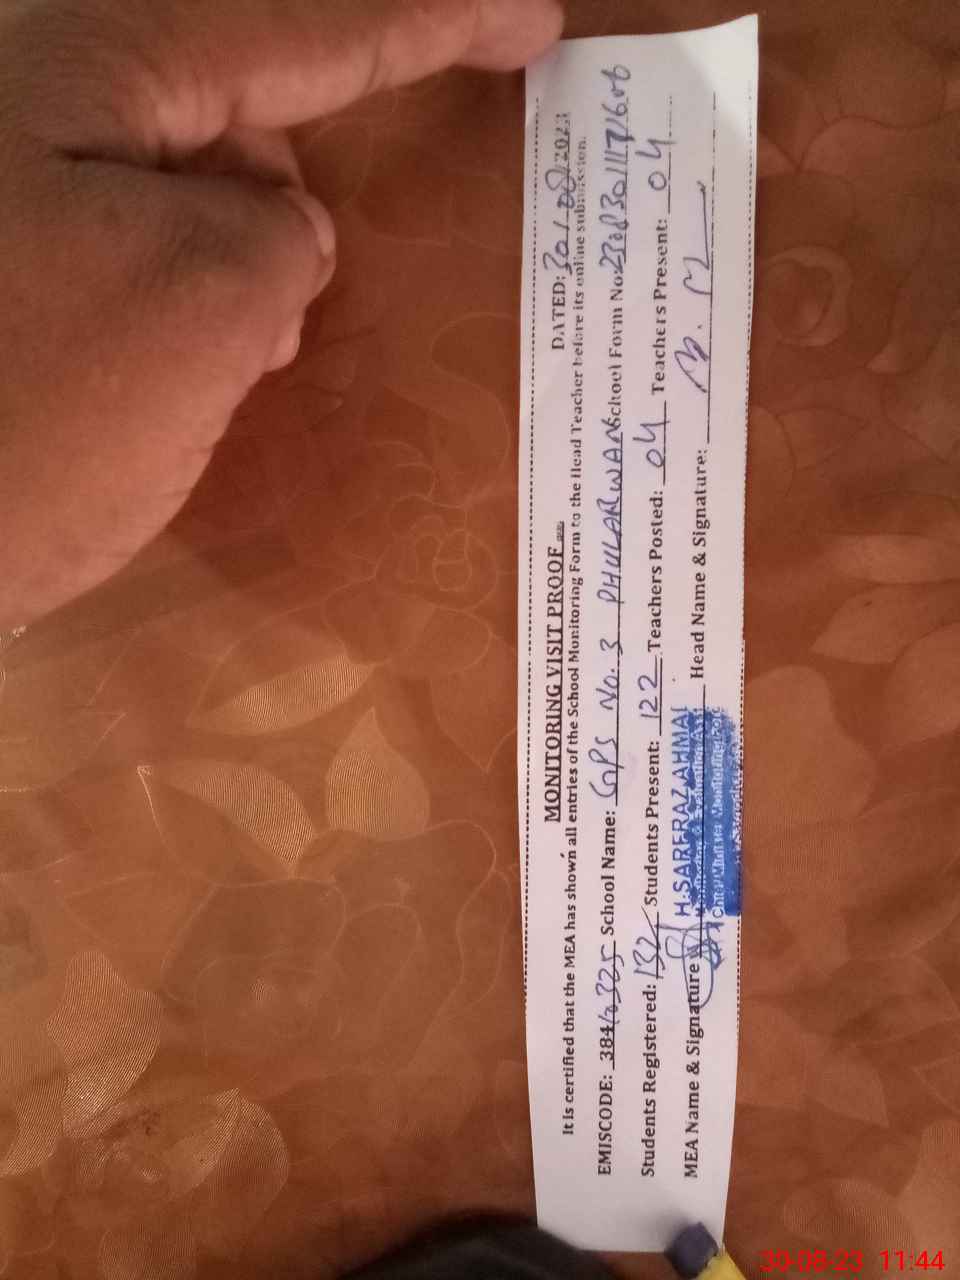 MONITORING VISIT PROOF
DATED: 30/08/2023
It is certified that the MEA has shown all entries of the School Monitoring Form to the Head Teacher before its online submission.
EMISCODE: 38410325 School Name: GPS No. 3 PHULARWAN School Form No:
Students Registered: 132 Students Present: 122 Teachers Posted: 04 Teachers Present: 04
MEA Name & Signature H.SARFRAZ AHMAD Head Name & Signature:
Monitoring & Evaluation Asst
Chief Minister Monitoring Force
30-08-23 11:44